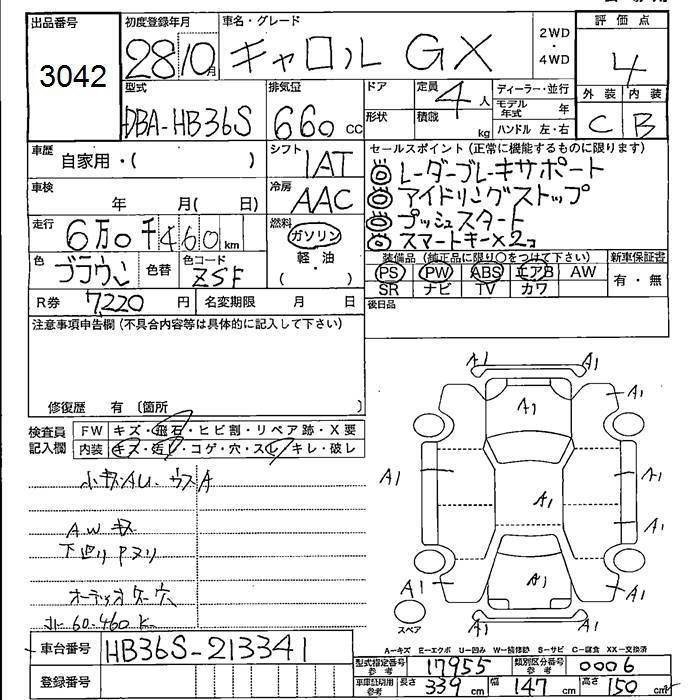 出品番号 初度登録年月 車名・グレード 2WD・4WD 評価点
3042 28 10月 キャロル GX 4
型式 排気量 ドア 定員 ディーラー・並行 外装 内装
DBA-HB36S 660 cc 4人 モデル年式 年 C B
形状 積載 kg ハンドル 左・右
車歴 自家用・( ) シフト IAT セールスポイント (正常に機能するものに限ります)
◎レーダーブレーキサポート
車検 年 月( 日) 冷房 AAC ◎アイドリングストップ
◎プッシュスタート
走行 6万0千460km 燃料 ガソリン 軽・油 ( ) ◎スマートキー×2コ
色 ブラウン 色替 色コード ZSF 装備品 (純正品に限り〇をつけて下さい) 新車保証書
PS PW ABS エアB AW 有・無
SR ナビ TV カワ
R券 7,220円 名変期限 月 日 後日品
注意事項申告欄 (不具合内容等は具体的に記入して下さい)
修復歴 有 〔箇所 〕
検査員記入欄 FW キズ・飛石・ヒビ割・リペア跡・X要
内装 キズ・汚レ・コゲ・穴・スレ・キレ・破レ
小キズ・AU.ウスA
AWキズ
下廻りPヌリ
オーディオケース穴
60.460 K
A1 A1
A1 A1
A1
A1 A1
A1 A1
A1 A1 A1
スペア
A1 A1
車台番号 HB36S-213341
登録番号
A-キズ E-エクボ U-凹み W-補修跡 S-サビ C-腐食 XX-交換済
型式指定番号 参考 17955 類別区分番号 参考 0006
車車証明用 参考 長さ 339 cm 幅 147 cm 高さ 150 cm